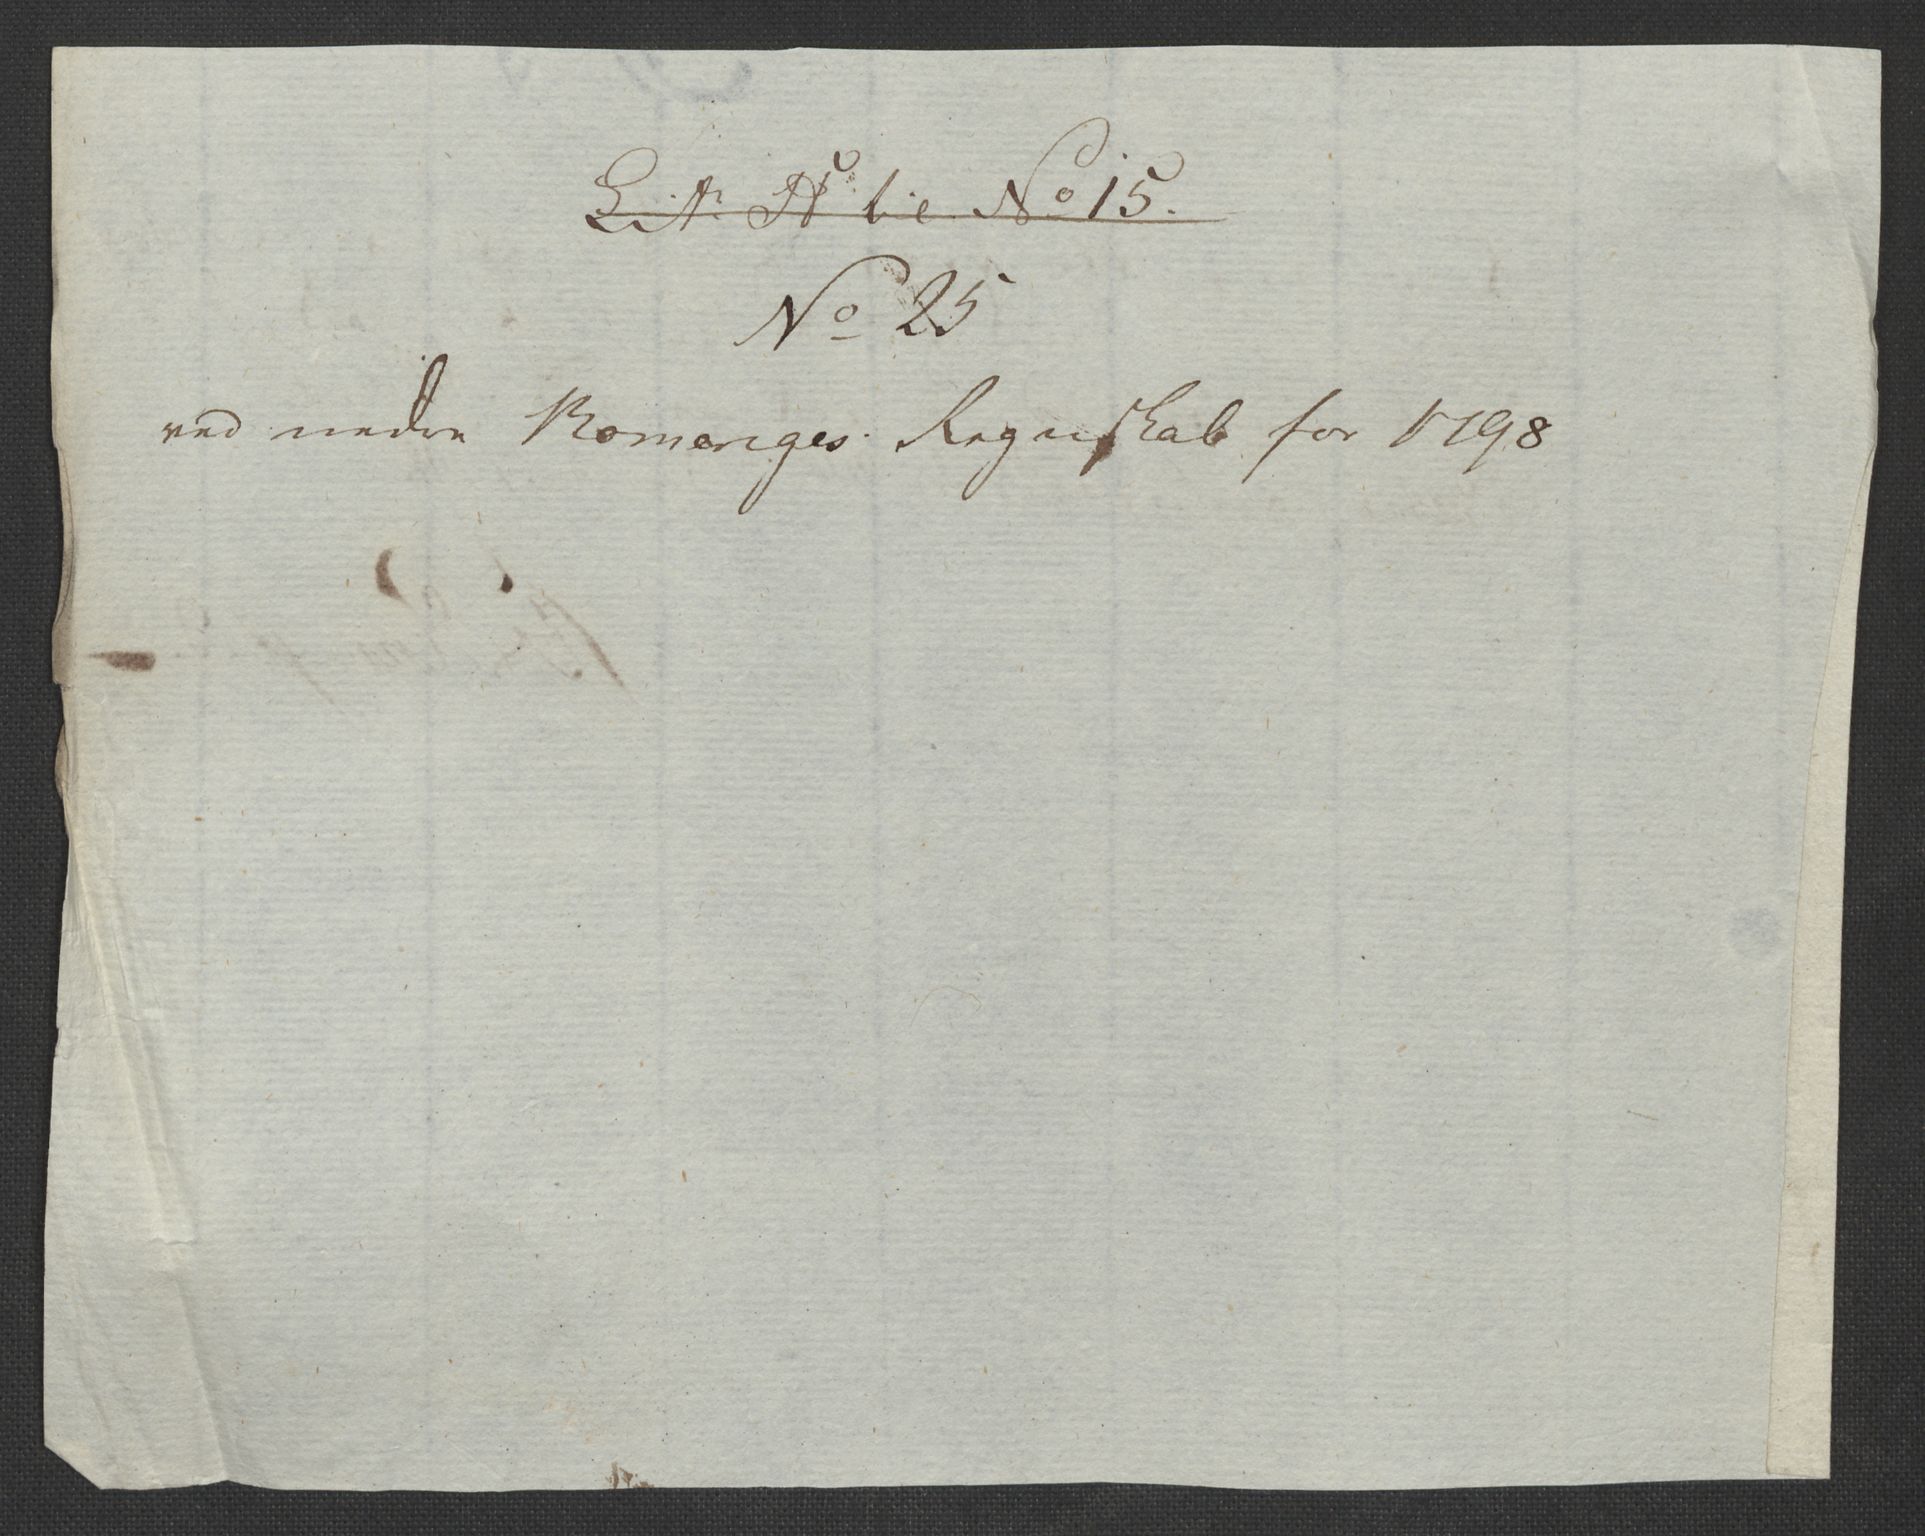 Litr: H: b: e. No 15.
No 25
ved nedre Romeriges Regnskab for 1798